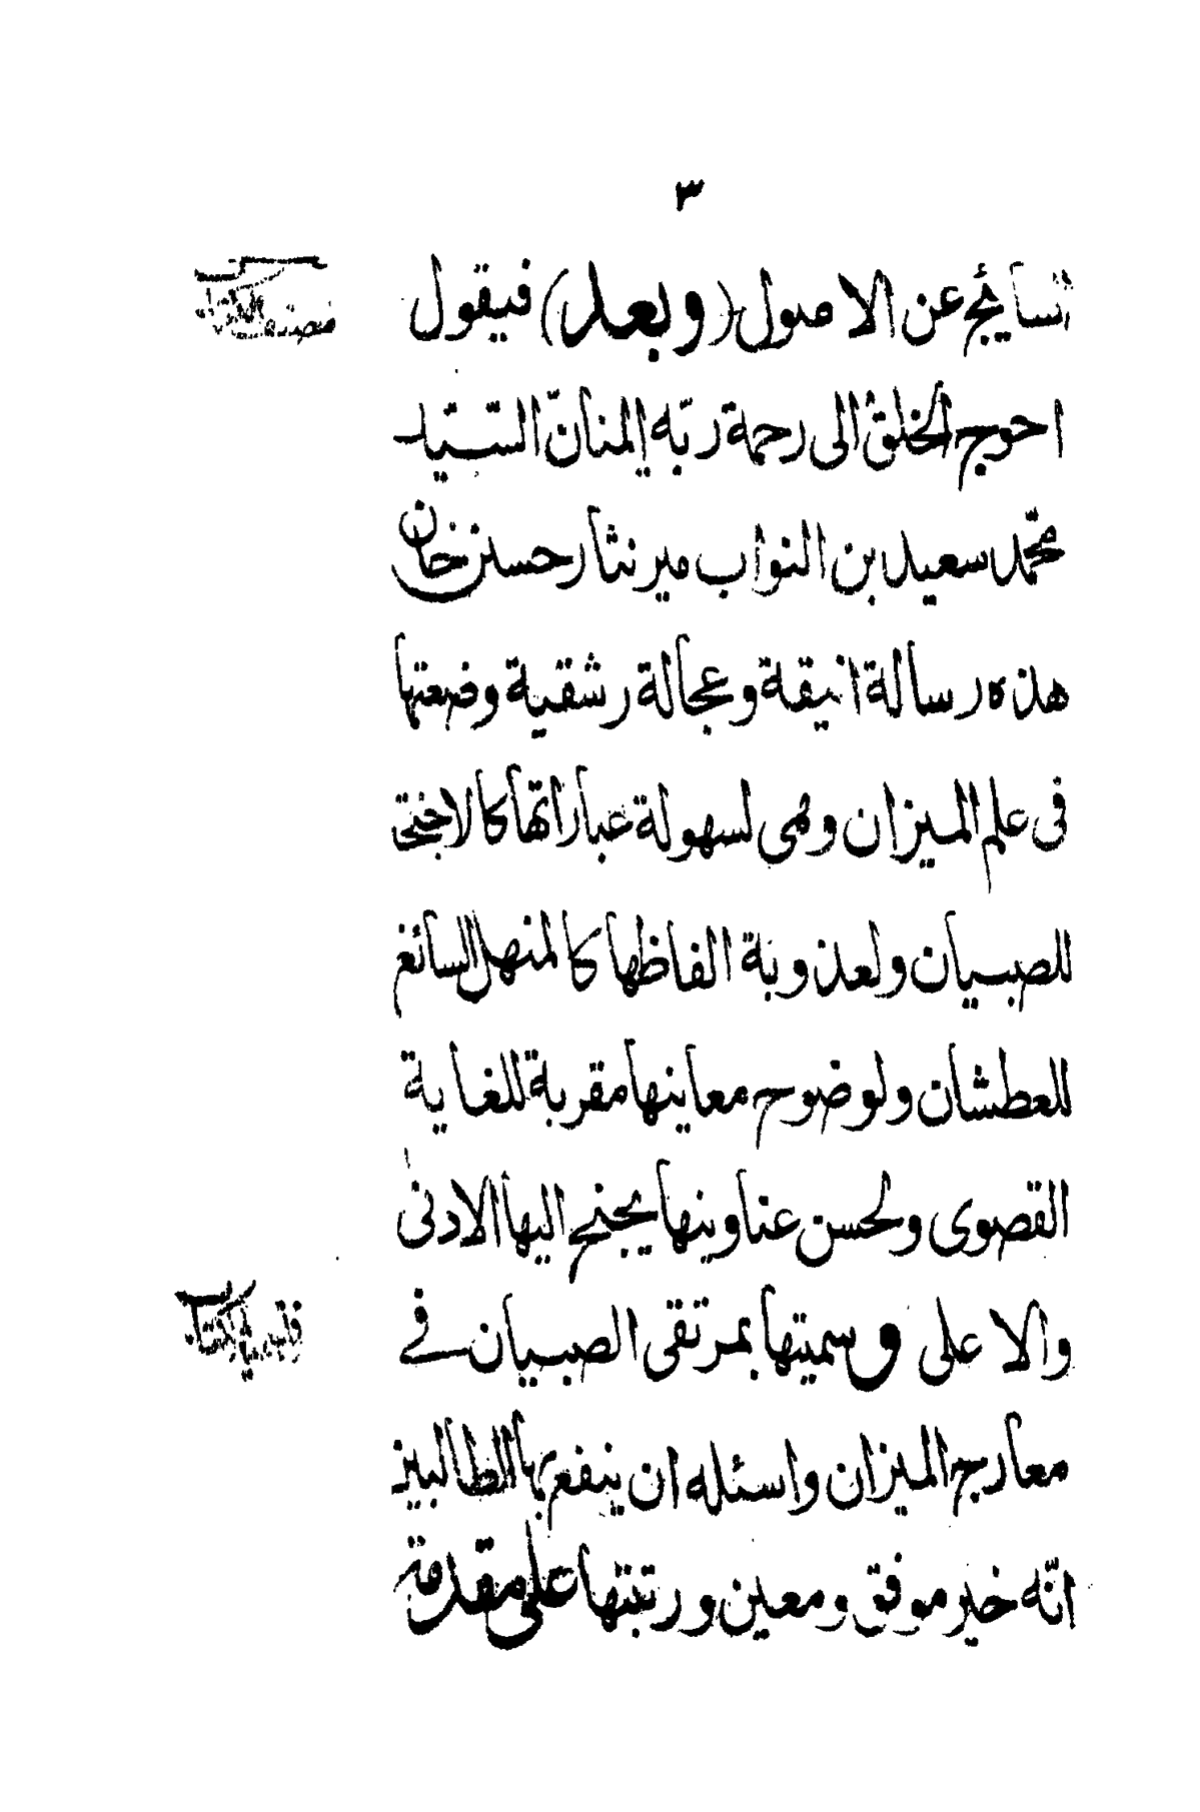 ٣
عن الاصول (وبعد) فيقول
احوج الخلق الى رحمة ربّه المنانّ السّيد
محمّد سعيد بن النواب مير نثار حسن خان
هذه رسالة انيقة وعجالة رشقية وضعتها
فى علم الميزان وهى لسهولة عباراتها
للصبيان ولعذوبة الفاظها كالمنهل السائغ
للعطشان ولوضوح معاينها مقربة للغاية
القصوى ولحسن عناوينها يجنح اليها الادنى
والاعلى وسميتها بمرتقى الصبيان فے
معارج الميزان واسئله ان ينفع بها الطالبين
انّه خير موفق ومعين ورتبتها على مقدمة